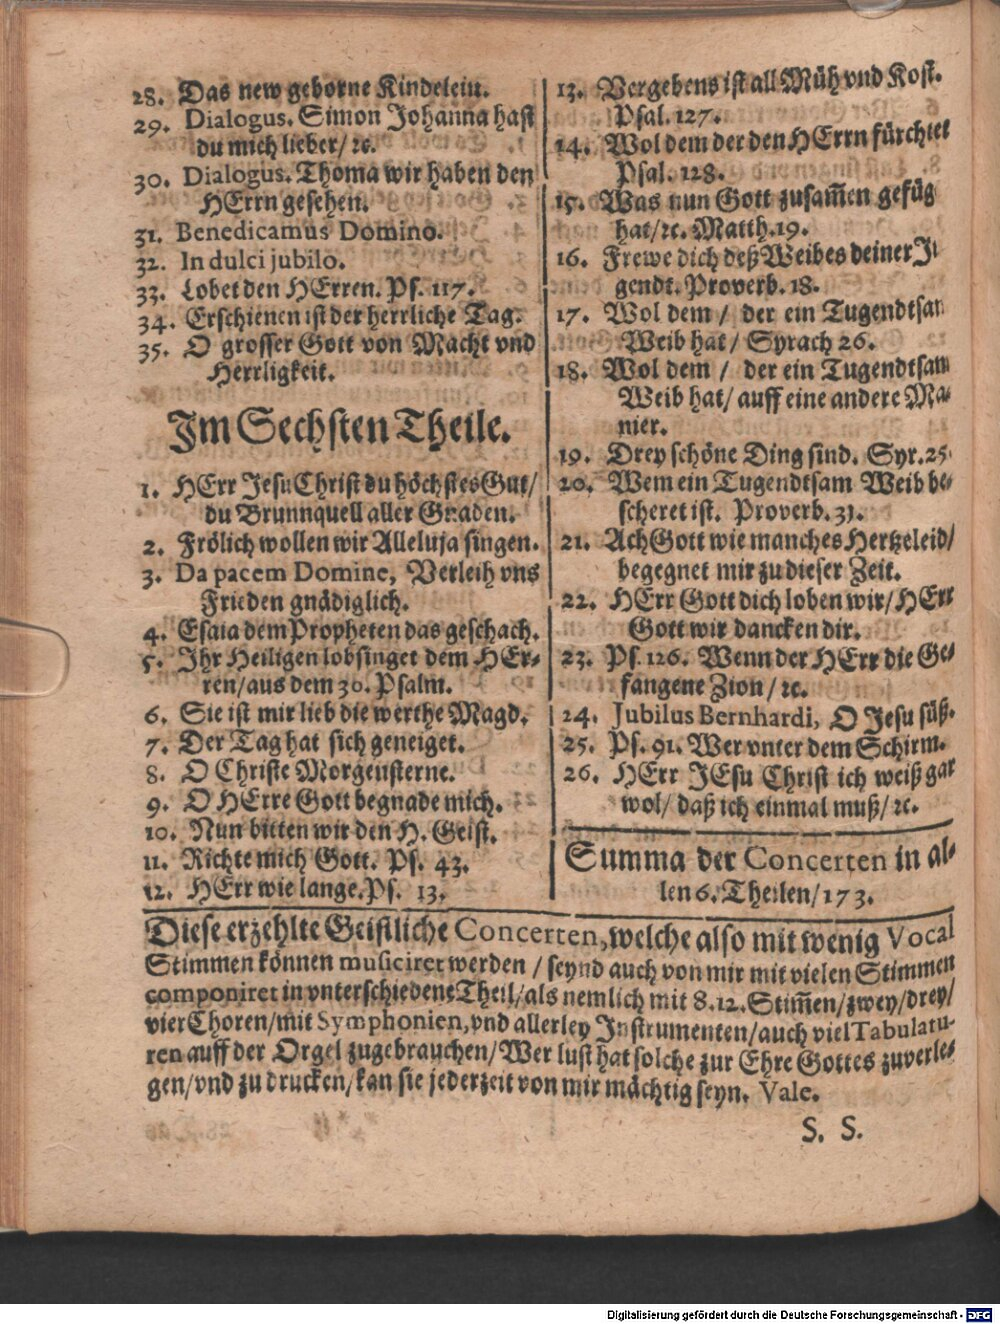 28. Das new geborne Kindelein.
29. Dialogus. Simon Johanna hast
du mich lieber/ ꝛc.
30. Dialogus. Thoma wir haben den
HErrn gesehen.
31. Benedicamus Domino.
32. In dulci jubilo.
33. Lobet den HErren. Ps. 117.
34. Erschienen ist der herrliche Tag.
35. O grosser Gott von Macht vnd
Herrligkeit.
Im Sechsten Theile.
1. HErr Jesu Christ du höchstes Gut/
du Brunnquell aller Gnaden.
2. Frölich wollen wir Alleluja singen.
3. Da pacem Domine, Verleih vns
Frieden gnädiglich.
4. Esaia dem Propheten das geschach.
5. Ihr Heiligen lobsinget dem HEr-
ren/aus dem 30. Psalm.
6. Sie ist mir lieb die werthe Magd.
7. Der Tag hat sich geneiget.
8. O Christe Morgensterne.
9. O HErre Gott begnade mich.
10. Nun bitten wir den H. Geist.
11. Richte mich Gott. Ps. 43.
12. HErr wie lange. Ps. 13.
13. Vergebens ist all Müh vnd Kost.
Psal. 127.
14. Wol dem der den HErrn fürchtet
Psal. 128.
15. Was nun Gott zusam̄en gefüg
hat/ꝛc. Matth. 19.
16. Frewe dich deß Weibes deiner Ju
gendt. Proverb. 18.
17. Wol dem / der ein Tugendtsam
Weib hat/ Syrach 26.
18. Wol dem / der ein Tugendtsam
Weib hat/ auff eine andere Ma-
nier.
19. Drey schöne Ding sind. Syr. 25.
20. Wem ein Tugendtsam Weib be-
scheret ist. Proverb. 31.
21. Ach Gott wie manches Hertzeleid/
begegnet mir zu dieser Zeit.
22. HErr Gott dich loben wir/ HErr
Gott wir dancken dir.
23. Ps. 126. Wenn der HErr die Ge-
fangene Zion / ꝛc.
24. Jubilus Bernhardi, O Jesu süß.
25. Ps. 91. Wer vnter dem Schirm.
26. HErr JEsu Christ ich weiß gar
wol/ daß ich einmal muß/ ꝛc.
Summa der Concerten in al-
len 6. Theilen/ 173.
Diese erzehlte Geistliche Concerten, welche also mit wenig Vocal
Stimmen können musiciret werden / seynd auch von mir mit vielen Stimmen
componiret in vnterschiedene Theil/als nemlich mit 8.12. Stim̄en/zwey/drey/
vier Choren/mit Symphonien, vnd allerley Instrumenten/auch viel Tabulatu-
ren auff der Orgel zugebrauchen/Wer lust hat solche zur Ehre Gottes zuverle-
gen/vnd zu drucken/kan sie jederzeit von mir mächtig seyn. Vale.
S. S.
Digitalisierung gefördert durch die Deutsche Forschungsgemeinschaft - DFG